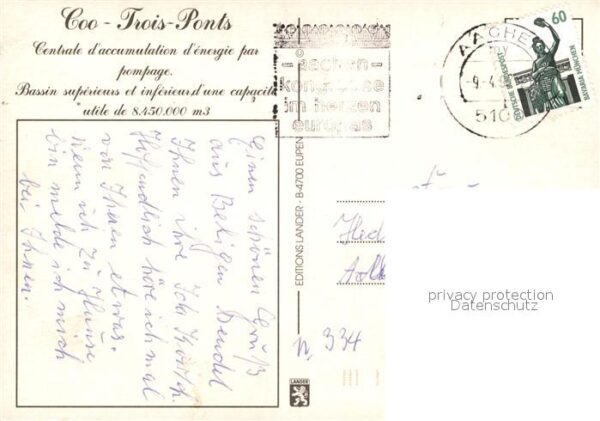 Coo - Trois-Ponts
Centrale d'accumulation d'énergie par
pompage.
Bassin supérieurs et inférieur,d'une capacité
utile de 8.450.000 m3
Einen schönen Gruß
aus Beligen sendet
Ihnen ihre
Hoffendlich höre ich mal
von Ihnen etwas.
wenn ich zu Hause
bin melde ich mich
bei Ihnen.
EDITIONS LANDER - B-4700 EUPEN
- aachen -
kongresse
im herzen
europas
AACHEN
my
9-4.9
510
60
DEUTSCHE BUNDESPOST
BAVARIA MÜNCHEN
n. 334
LANDER
privacy protection
Datenschutz